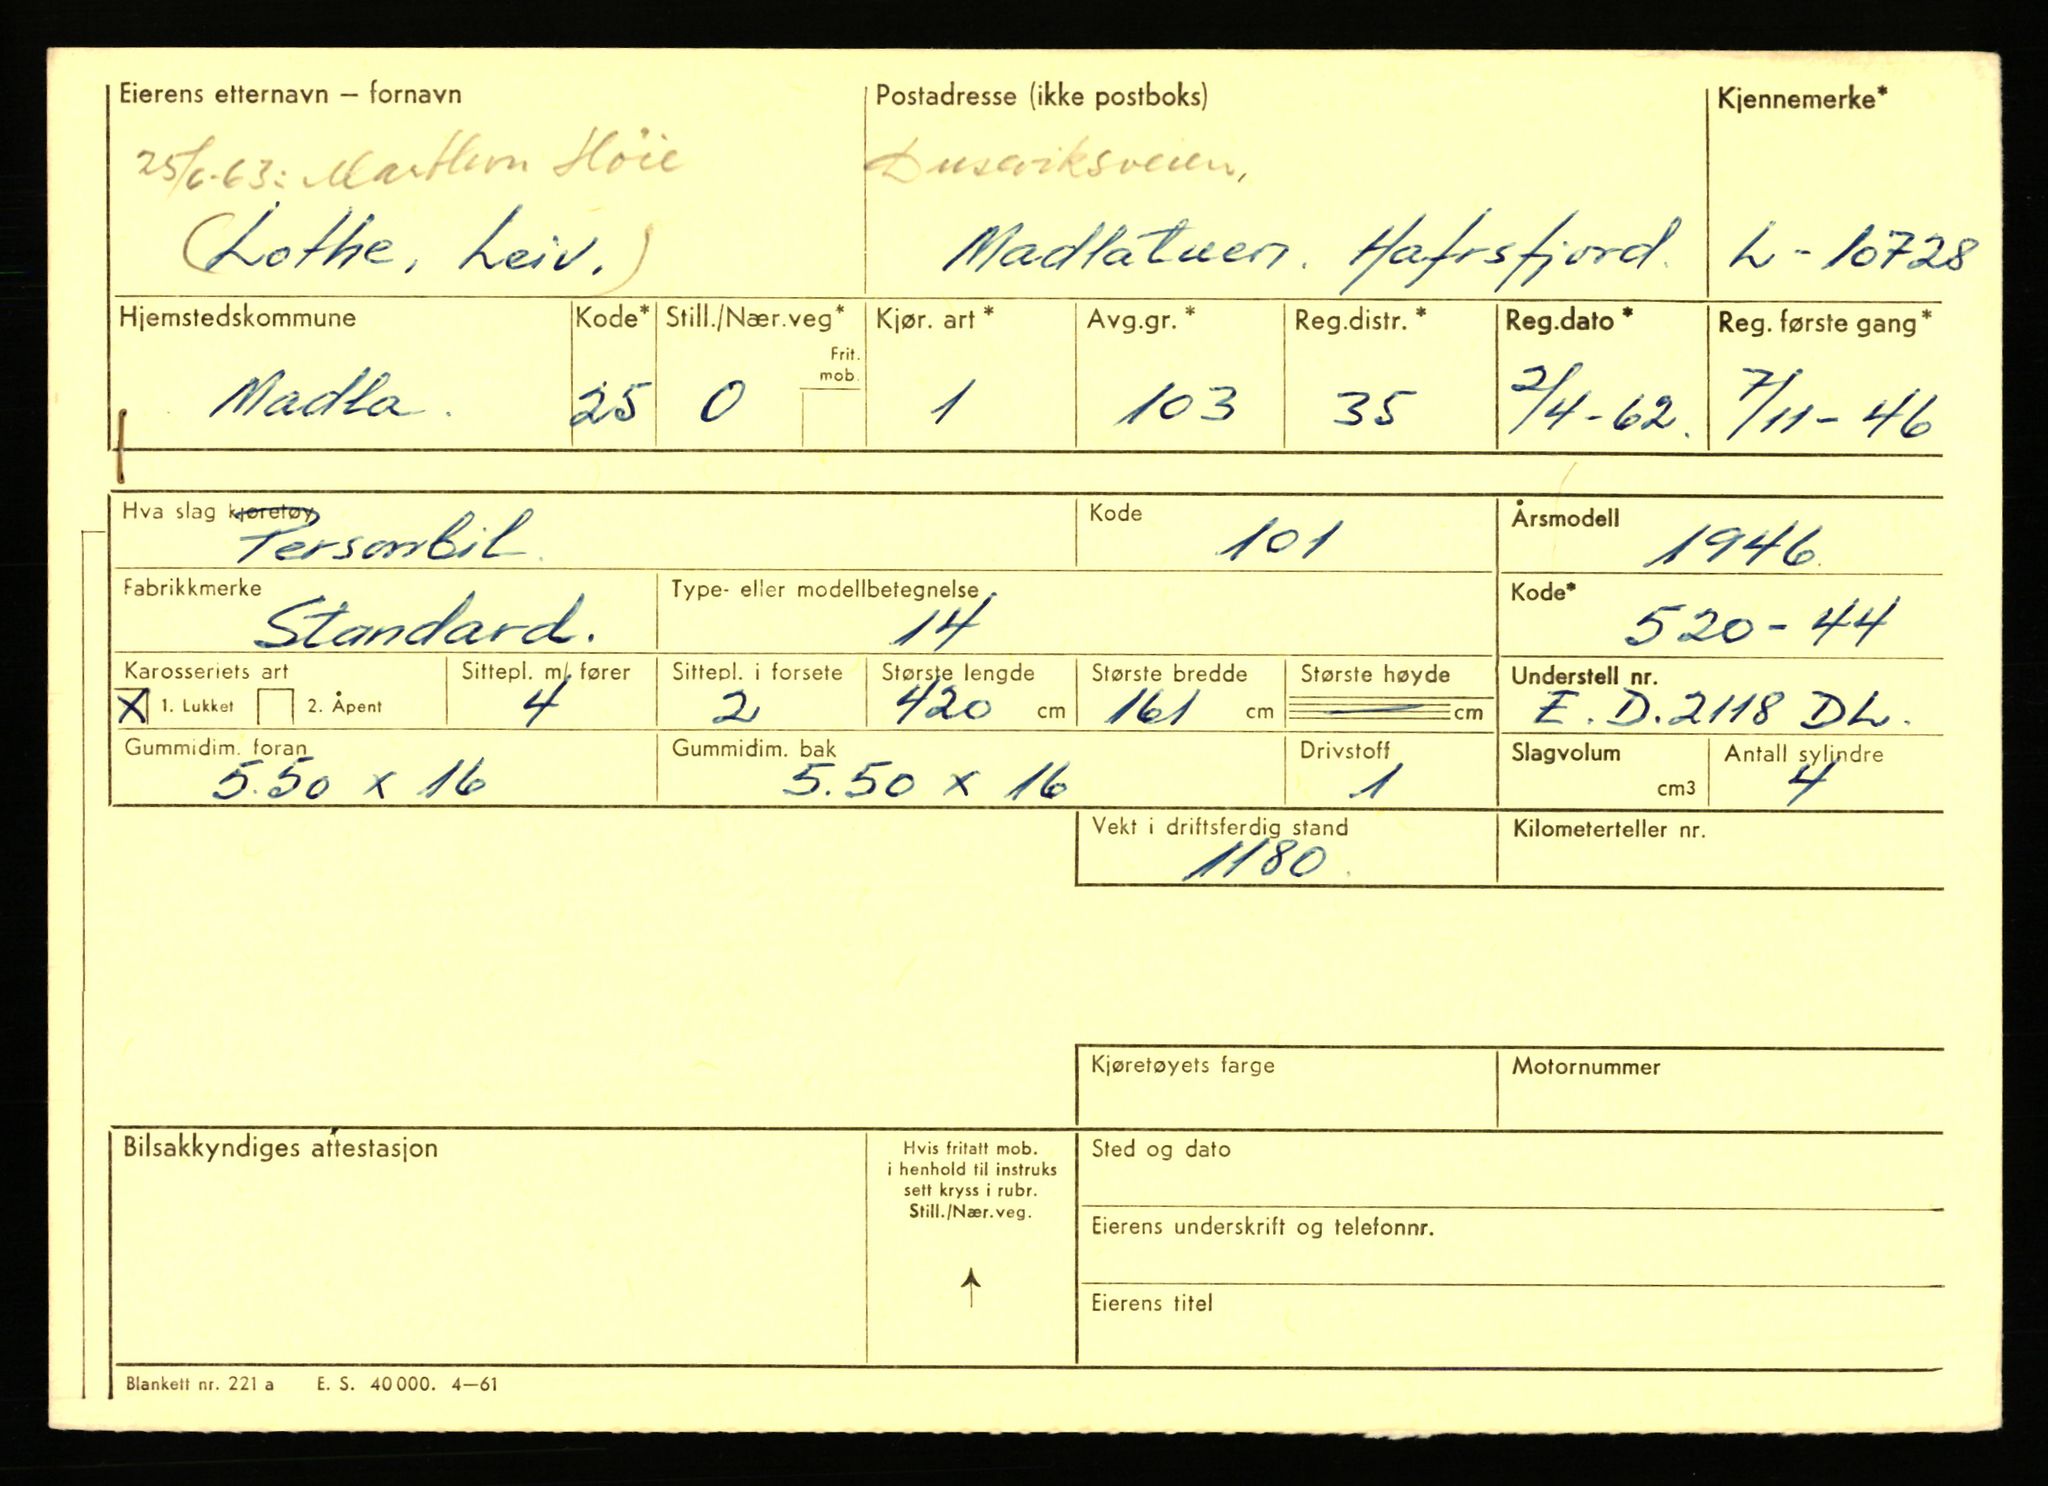 Eierens etternavn — fornavn Postadresse (ikke postboks) Kjennemerke*
25/6-63: Høie Dusaviksveien,
(Lothe, Leiv.) Madlatuen. Hafrsfjord. L - 10728
Hjemstedskommune Kode* Still./Nær.veg* Kjør. art* Avg.gr.* Reg.distr.* Reg.dato* Reg. første gang*
Frit.
mob.
Madla. 25 0 1 103 35 2/4-62. 7/11-46
Hva slag kjøretøy Kode Årsmodell
Personbil. 101 1946.
Fabrikkmerke Type- eller modellbetegnelse Kode*
Standard. 14 520-44
Karosseriets art Sittepl. m/ fører Sittepl. i forsete Største lengde Største bredde Største høyde Understell nr.
X 1. Lukket 2. Åpent 4 2 420 cm 161 cm — cm E.D.2118 DL.
Gummidim. foran Gummidim. bak Drivstoff Slagvolum Antall sylindre
5.50 x 16 5.50 x 16 1 cm3 4
Vekt i driftsferdig stand Kilometerteller nr.
1180.
Kjøretøyets farge Motornummer
Bilsakkyndiges attestasjon Hvis fritatt mob. Sted og dato
i henhold til instruks
sett kryss i rubr.
Still./Nær.veg.
Eierens underskrift og telefonnr.
↑
Eierens titel
Blankett nr. 221 a E. S. 40 000. 4—61